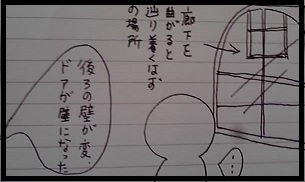 廊下を
曲がると
辿り着くはず
の場所
後ろの壁が変、
ドアが壁になった